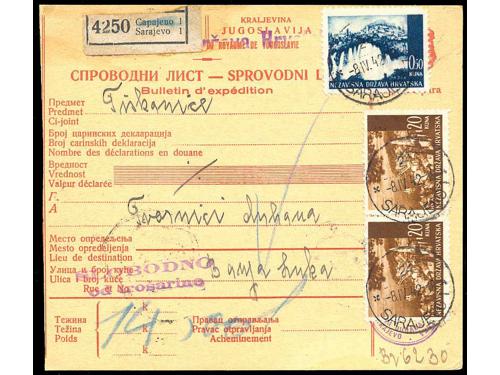 4250
Сарајево 1
Sarajevo 1
KRALJEVINA
JUGOSLAVIJA
DU ROYAUME DE YOUGOSLAVIE
0.50
KUNA
NEZAVISNA DRŽAVA HRVATSKA
-8.IV.42
СПРОВОДНИ ЛИСТ — SPROVODNI
Bulletin d'expédition
Предмет
Predmet
Ci-joint
Број царинских декларација
Broj carinskih deklaracija
Nombre des déclarations en douane
Вредност
Vrednost
Valeur déclarée
Г.
A
Tvornici duhana
Место опредељења
Mesto opredeljenja
Lieu de destination
Улица и број куће
Ulica i broj kuće
Rue et No
Banja Luka
SLOBODNO
od trošarine
Тежина
Težina
Poids
k
k
k
14
Правац отправљања
Pravac otpravljanja
Acheminement
20
KUNA
NEZAVISNA DRŽAVA HRVATSKA
-8.IV.42
SARAJEVO
20
KUNA
NEZAVISNA DRŽAVA HRVATSKA
-8.IV.42
SARAJEVO